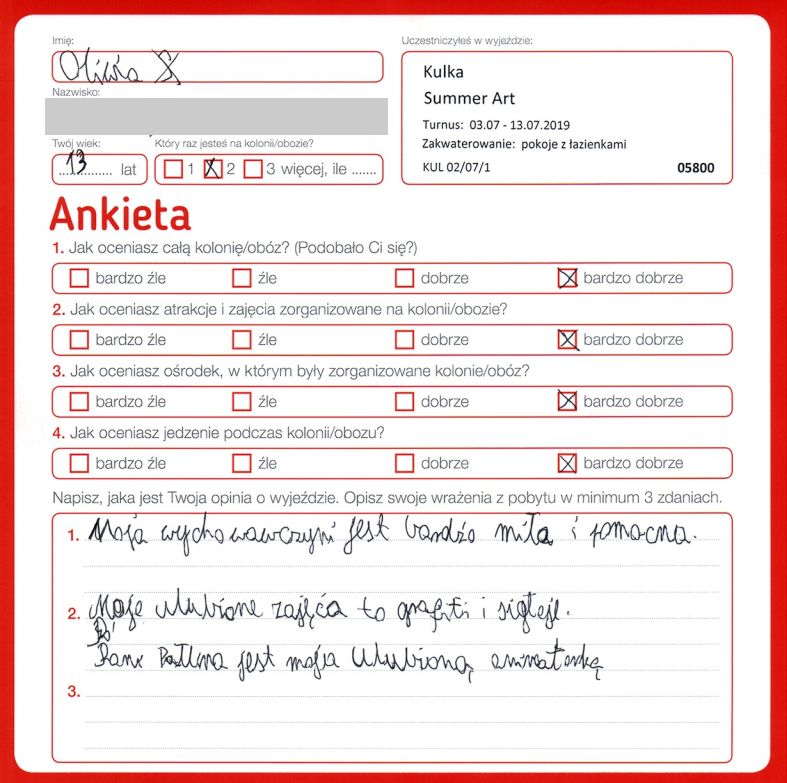 Imię:
Oliwia
Uczestniczyłeś w wyjeździe:
Kulka
Summer Art
Turnus: 03.07 - 13.07.2019
Zakwaterowanie: pokoje z łazienkami
KUL 02/07/1 05800
Nazwisko:
Twój wiek:
13 lat
Który raz jesteś na kolonii/obozie?
1 2 3 więcej, ile .......
Ankieta
1. Jak oceniasz całą kolonię/obóz? (Podobało Ci się?)
bardzo źle źle dobrze bardzo dobrze
2. Jak oceniasz atrakcje i zajęcia zorganizowane na kolonii/obozie?
bardzo źle źle dobrze bardzo dobrze
3. Jak oceniasz ośrodek, w którym były zorganizowane kolonie/obóz?
bardzo źle źle dobrze bardzo dobrze
4. Jak oceniasz jedzenie podczas kolonii/obozu?
bardzo źle źle dobrze bardzo dobrze
Napisz, jaka jest Twoja opinia o wyjeździe. Opisz swoje wrażenia z pobytu w minimum 3 zdaniach.
1. Moja wychowawczyni jest bardzo miła i pomocna.
2. Moje ulubione zajęcia to graffiti i
jest moja ulubioną animatorką
3.